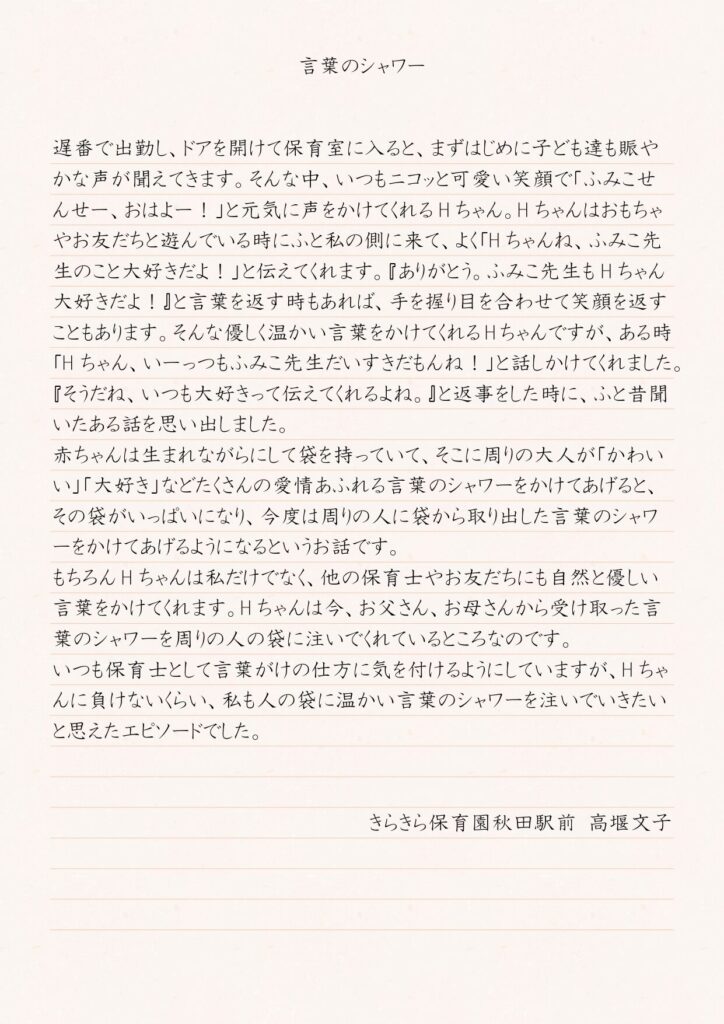 言葉のシャワー
遅番で出勤し、ドアを開けて保育室に入ると、まずはじめに子ども達も賑や
かな声が聞えてきます。そんな中、いつもニコッと可愛い笑顔で「ふみこせ
んせー、おはよー！」と元気に声をかけてくれるHちゃん。Hちゃんはおもちゃ
やお友だちと遊んでいる時にふと私の側に来て、よく「Hちゃんね、ふみこ先
生のこと大好きだよ！」と伝えてくれます。『ありがとう。ふみこ先生もHちゃん
大好きだよ！』と言葉を返す時もあれば、手を握り目を合わせて笑顔を返す
こともあります。そんな優しく温かい言葉をかけてくれるHちゃんですが、ある時
「Hちゃん、いーっつもふみこ先生だいすきだもんね！」と話しかけてくれました。
『そうだね、いつも大好きって伝えてくれるよね。』と返事をした時に、ふと昔聞
いたある話を思い出しました。
赤ちゃんは生まれながらにして袋を持っていて、そこに周りの大人が「かわい
い」「大好き」などたくさんの愛情あふれる言葉のシャワーをかけてあげると、
その袋がいっぱいになり、今度は周りの人に袋から取り出した言葉のシャワ
ーをかけてあげるようになるというお話です。
もちろんHちゃんは私だけでなく、他の保育士やお友だちにも自然と優しい
言葉をかけてくれます。Hちゃんは今、お父さん、お母さんから受け取った言
葉のシャワーを周りの人の袋に注いでくれているところなのです。
いつも保育士として言葉がけの仕方に気を付けるようにしていますが、Hちゃ
んに負けないくらい、私も人の袋に温かい言葉のシャワーを注いでいきたい
と思えたエピソードでした。
きらきら保育園秋田駅前 高堰文子